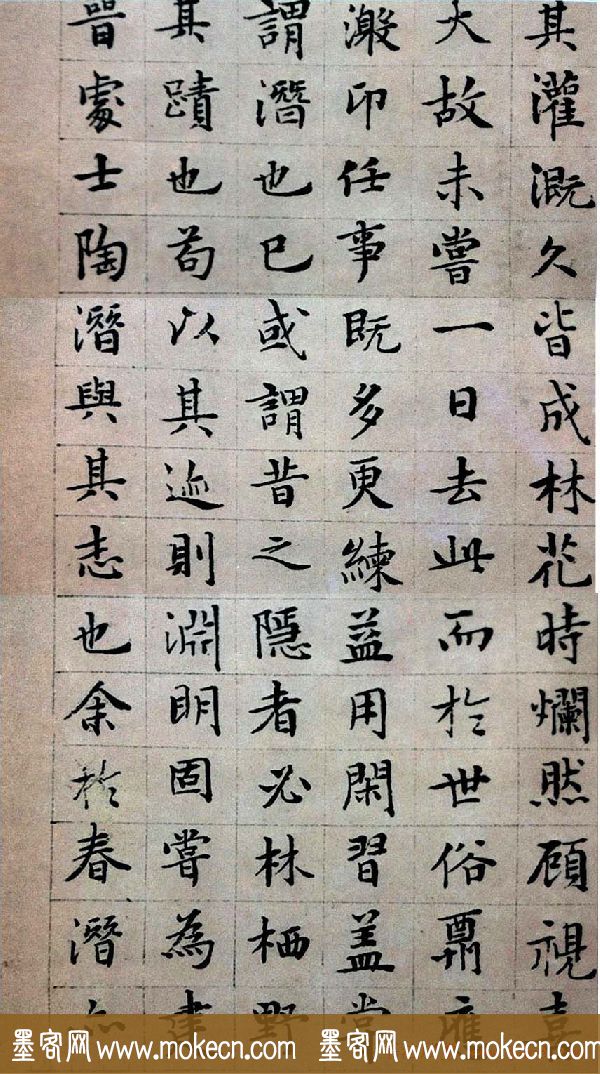 其灌溉久皆成林花時爛然顧視喜
大故未嘗一日去此而於世俗應
激卬任事既多更練益用閑習蓋當
謂潛也已或謂昔之隱者必林栖野
其蹟也苟以其迹則淵明固嘗為建
晉處士陶潛與其志也余於春潛
墨客网 www.mokecn.com 墨客网 www.mokecn.com